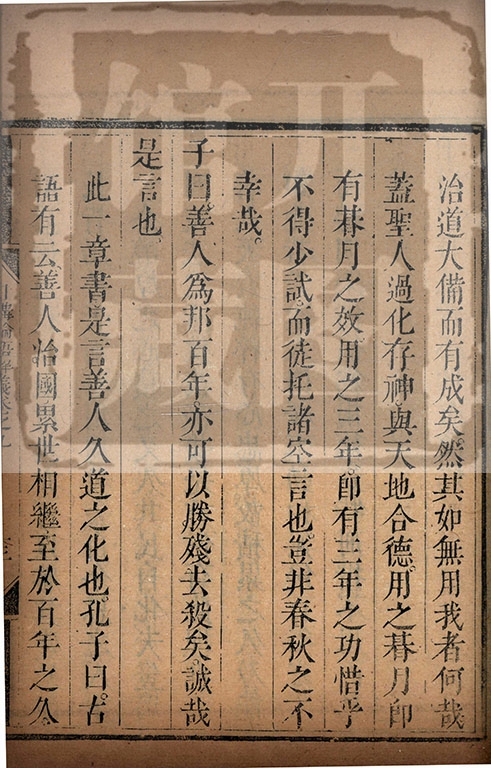 治道大備而有成矣。然其如無用我者何哉
蓋聖人過化存神。與天地合德。用之朞月。卽
有朞月之效。用之三年。卽有三年之功。惜乎
不得少試。而徒托諸空言也。豈非春秋之不
幸哉。
子曰。善人為邦百年。亦可以勝殘去殺矣。誠哉
是言也。
此一章書。是言善人久道之化也。孔子曰。古
語有云。善人治國。累世相繼。至於百年之久